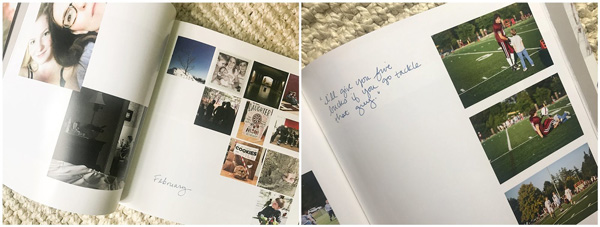 COOKIES
February
"I'll give you five
bucks if you go tackle
that guy."